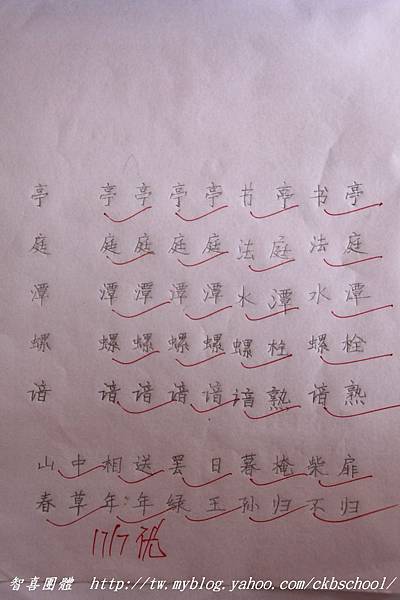 亭 亭亭 亭亭 书亭 书亭
庭 庭庭 庭庭 法庭 法庭
潭 潭潭 潭潭 水潭 水潭
螺 螺螺 螺螺 螺栓 螺栓
谙 谙谙 谙谙 谙熟 谙熟
山中相送罢日暮掩柴扉
春草年年绿王孙归不归
17/7 优
智喜團體 http://tw.myblog.yahoo.com/ckbschool/